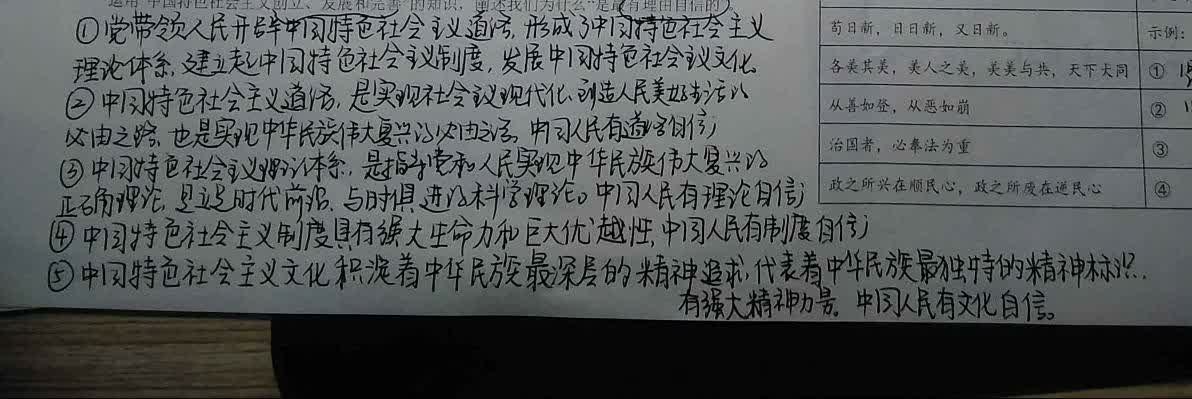 运用"中国特色社会主义创立、发展和完善"的知识，阐述我们为什么"是最有理由自信的"。
①党带领人民开辟中国特色社会主义道路，形成了中国特色社会主义
理论体系，建立起中国特色社会主义制度，发展中国特色社会主义文化。
②中国特色社会主义道路，是实现社会主义现代化、创造人民美好生活的
必由之路，也是实现中华民族伟大复兴的必由之路，中国人民有道路自信；
③中国特色社会主义理论体系，是指导党和人民实现中华民族伟大复兴的
正确理论，是立足时代前沿、与时俱进的科学理论。中国人民有理论自信；
④中国特色社会主义制度具有强大生命力和巨大优越性，中国人民有制度自信；
⑤中国特色社会主义文化积淀着中华民族最深层的精神追求，代表着中华民族最独特的精神标识，
有强大精神力量。中国人民有文化自信。
苟日新，日日新，又日新。 示例：
各美其美，美人之美，美美与共，天下大同 ①
从善如登，从恶如崩 ②
治国者，必奉法为重 ③
政之所兴在顺民心，政之所废在逆民心 ④